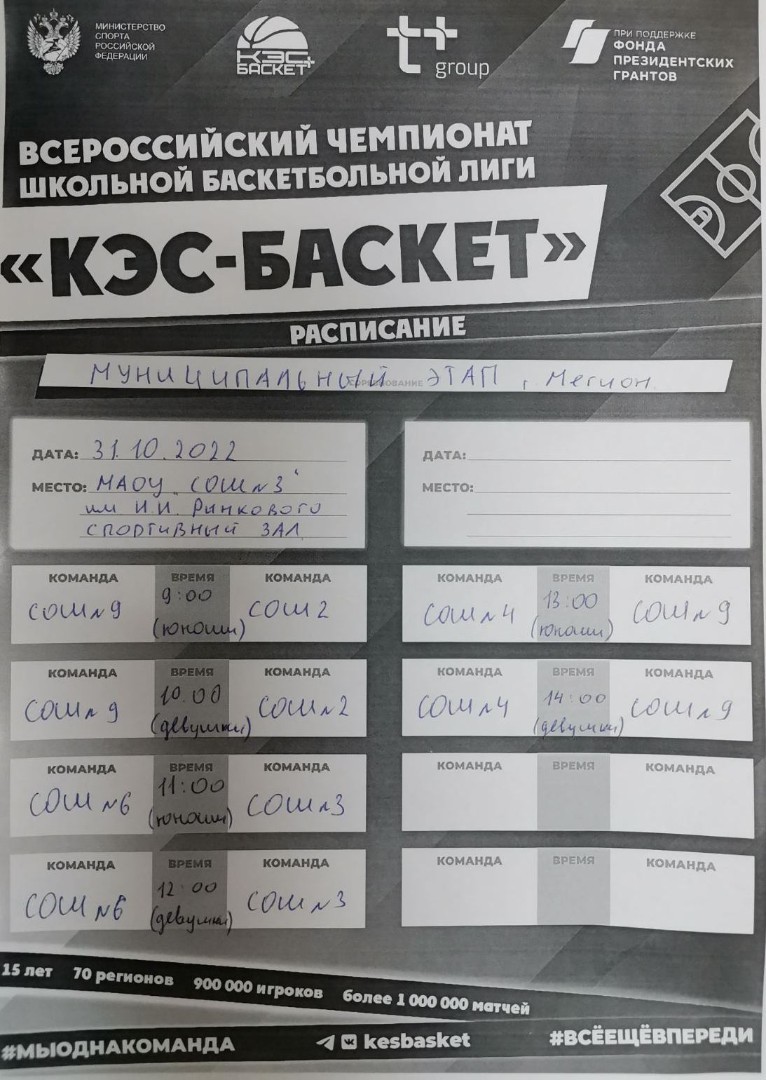 МИНИСТЕРСТВО
СПОРТА
РОССИЙСКОЙ
ФЕДЕРАЦИИ
КЭС
БАСКЕТ
т+
group
ПРИ ПОДДЕРЖКЕ
ФОНДА
ПРЕЗИДЕНТСКИХ
ГРАНТОВ
ВСЕРОССИЙСКИЙ ЧЕМПИОНАТ
ШКОЛЬНОЙ БАСКЕТБОЛЬНОЙ ЛИГИ
«КЭС-БАСКЕТ»
РАСПИСАНИЕ
МУНИЦИПАЛЬНЫЙ ЭТАП, Мегион
ДАТА: 31.10.2022
МЕСТО: МАОУ "СОШ №3"
им И.И. Рынкового
СПОРТИВНЫЙ ЗАЛ
ДАТА:
МЕСТО:
КОМАНДА ВРЕМЯ КОМАНДА
СОШ №9 9:00 СОШ 2
(юноши)
КОМАНДА ВРЕМЯ КОМАНДА
СОШ №4 13:00 СОШ №9
(юноши)
КОМАНДА ВРЕМЯ КОМАНДА
СОШ №9 10.00 СОШ №2
(девушки)
КОМАНДА ВРЕМЯ КОМАНДА
СОШ №4 14:00 СОШ №9
(девушки)
КОМАНДА ВРЕМЯ КОМАНДА
СОШ №6 11:00 СОШ №3
(юноши)
КОМАНДА ВРЕМЯ КОМАНДА
КОМАНДА ВРЕМЯ КОМАНДА
СОШ №6 12:00 СОШ №3
(девушки)
КОМАНДА ВРЕМЯ КОМАНДА
15 лет 70 регионов 900 000 игроков более 1 000 000 матчей
#МЫОДНАКОМАНДА
kesbasket
#ВСЁЕЩЁВПЕРЕДИ